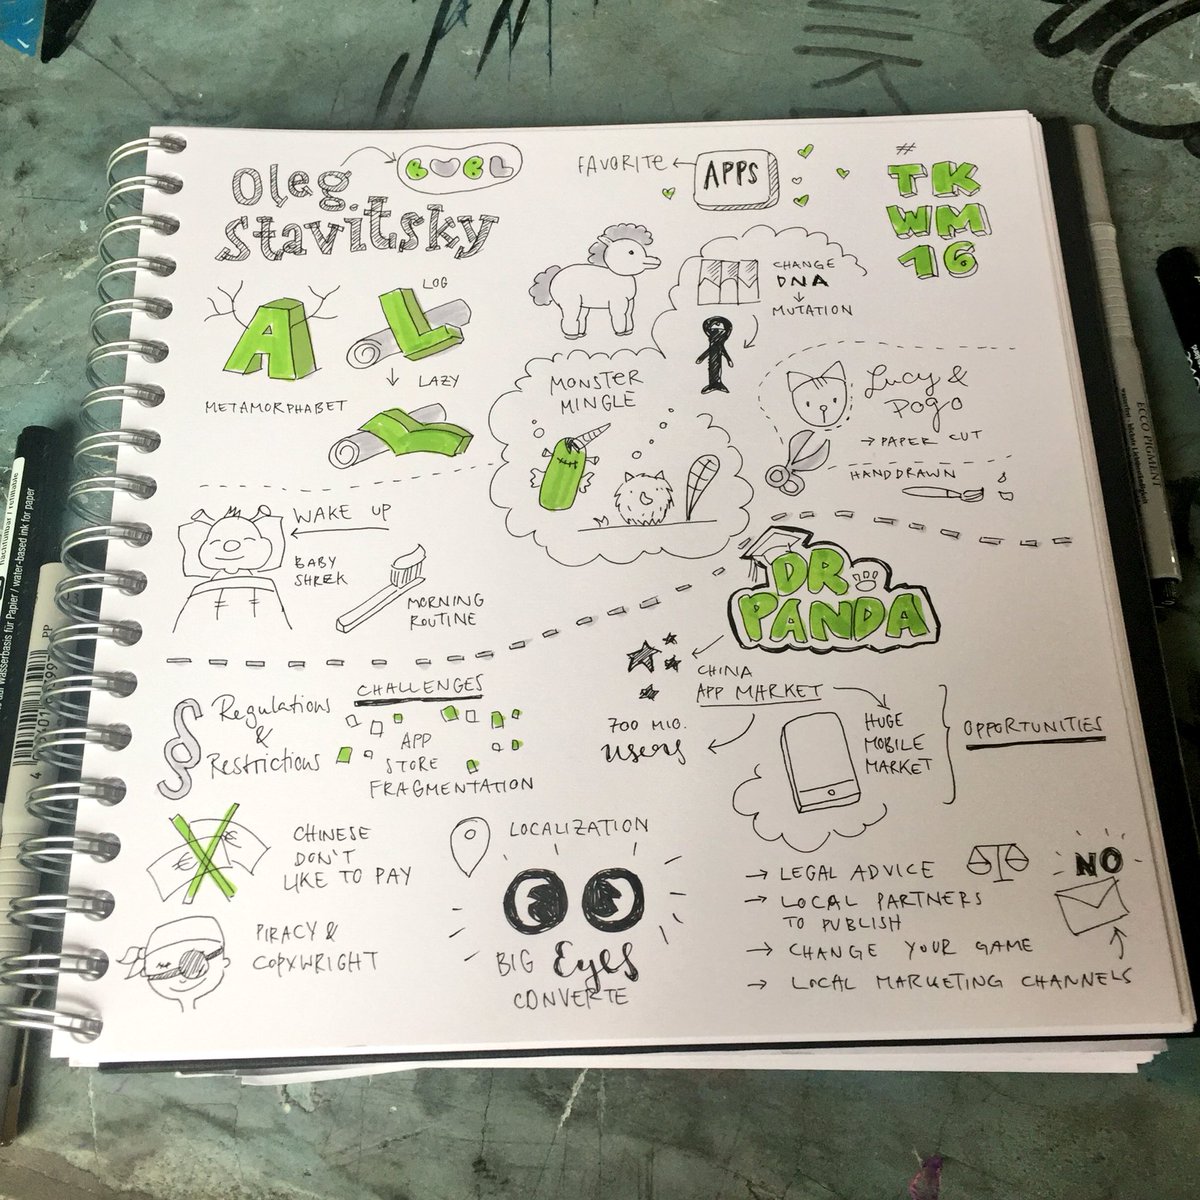 Oleg
Stavitsky
BUBL
FAVORITE
APPS
#
TK
WM
16
A
METAMORPHABET
L
LOG
LAZY
CHANGE
DNA
MUTATION
MONSTER
MINGLE
Lucy &
Pogo
PAPER CUT
HANDDRAWN
WAKE UP
BABY
SHREK
MORNING
ROUTINE
DR.
PANDA
CHINA
APP MARKET
700 MIO.
users
HUGE
MOBILE
MARKET
OPPORTUNITIES
CHALLENGES
§ Regulations
&
Restrictions
APP
STORE
FRAGMENTATION
CHINESE
DON'T
LIKE TO PAY
PIRACY &
COPYWRIGHT
LOCALIZATION
BIG Eyes
CONVERTE
→ LEGAL ADVICE
→ LOCAL PARTNERS
TO PUBLISH
→ CHANGE YOUR GAME
→ LOCAL MARKETING CHANNELS
NO
ECCO PIGMENT